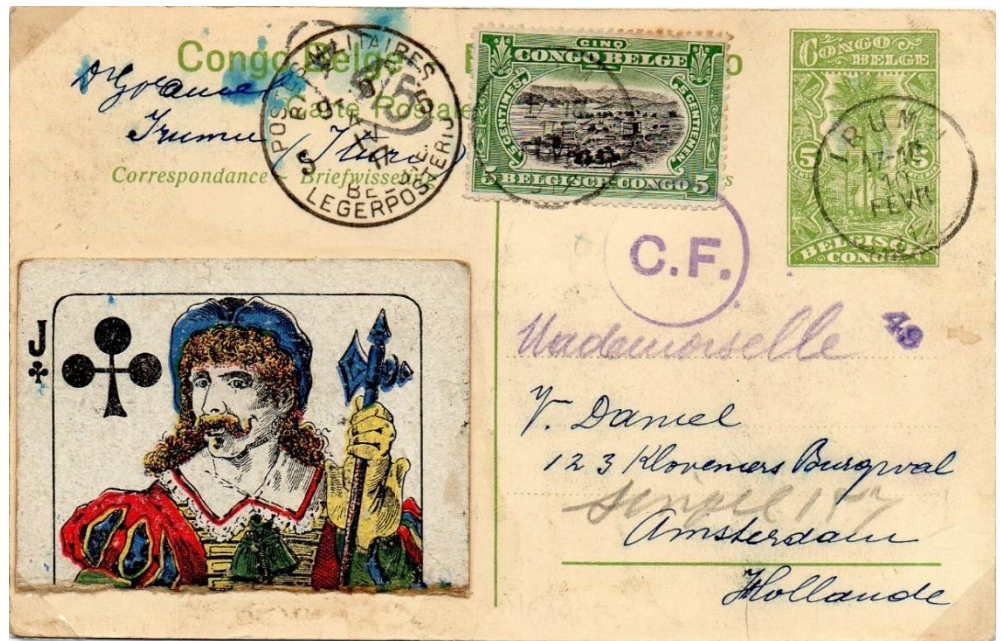 Congo Belge
Carte Postale
Irumu (Ituri)
Correspondance Briefwisseling
POSTES MILITAIRES
BELGIQUE
LEGERPOSTERIJ
5
CINQ
CONGO BELGE
5 CENTIMES.
5 CENTIEMEN.
5 BELGISCH-CONGO 5
CONGO
BELGE
5 5
BELGISCH
CONGO
IRUMU
10
FEVR
C.F.
49
J
Mademoiselle
V. Daniel
123 Kloveniers Burgwal
Singel 1
Amsterdam
Hollande